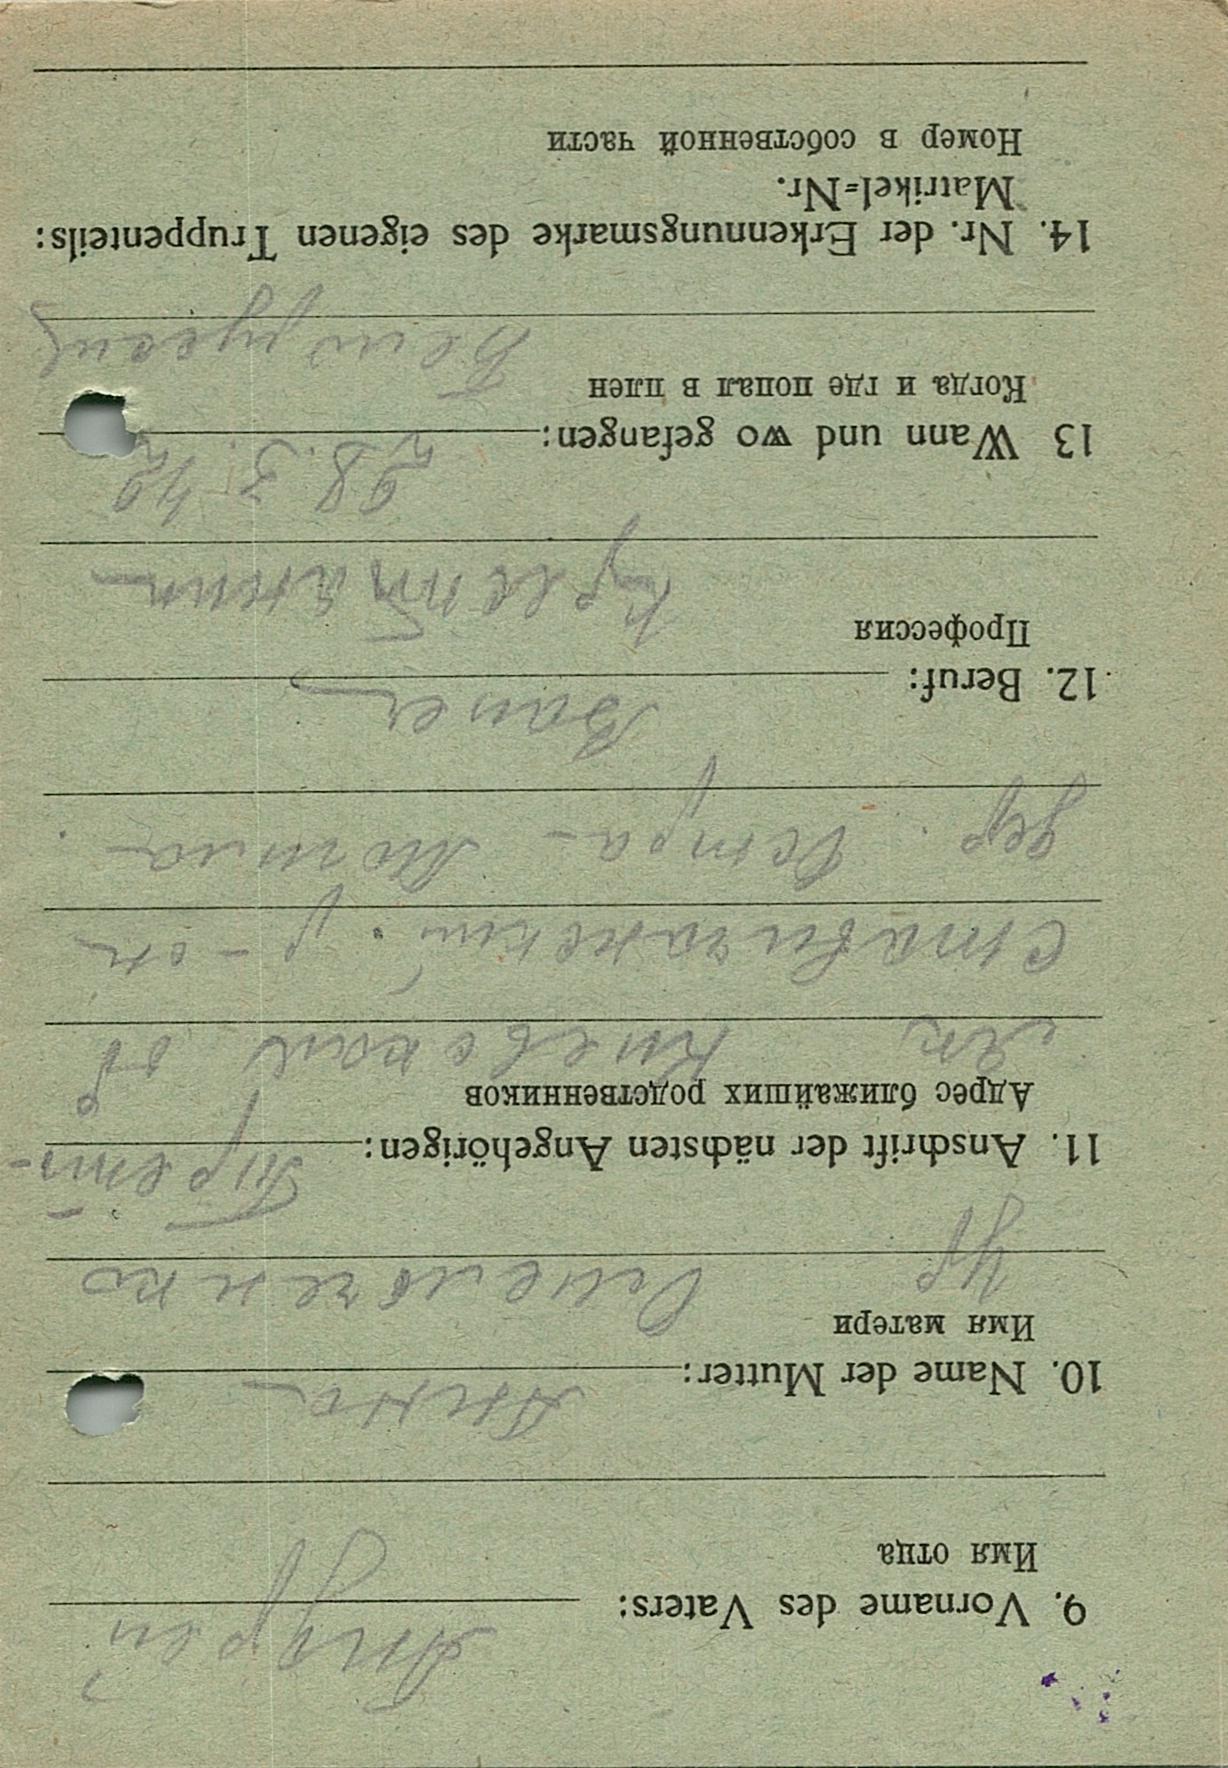 9. Vorname des Vaters: Андрей
Имя отца
10. Name der Mutter: Анна
Имя матери
Ур Емельченко
11. Anschrift der nächsten Angehörigen: Андрей-
Адрес ближайших родственников
Киевская об
ставичанский р-он
дер. Остра - Могила
12. Beruf: Bauer
Профессия
крестьянин
13 Wann und wo gefangen: 28. 5. 42
Когда и где попал в плен
14. Nr. der Erkennungsmarke des eigenen Truppenteils:
Matrikel=Nr.
Номер в собственной части